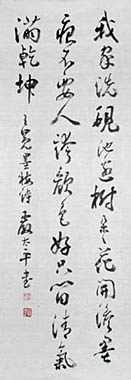 我家洗硯池邊樹朵々花開淡墨
痕不要人誇顏色好只留清氣
滿乾坤
王冕墨梅詩 太平書